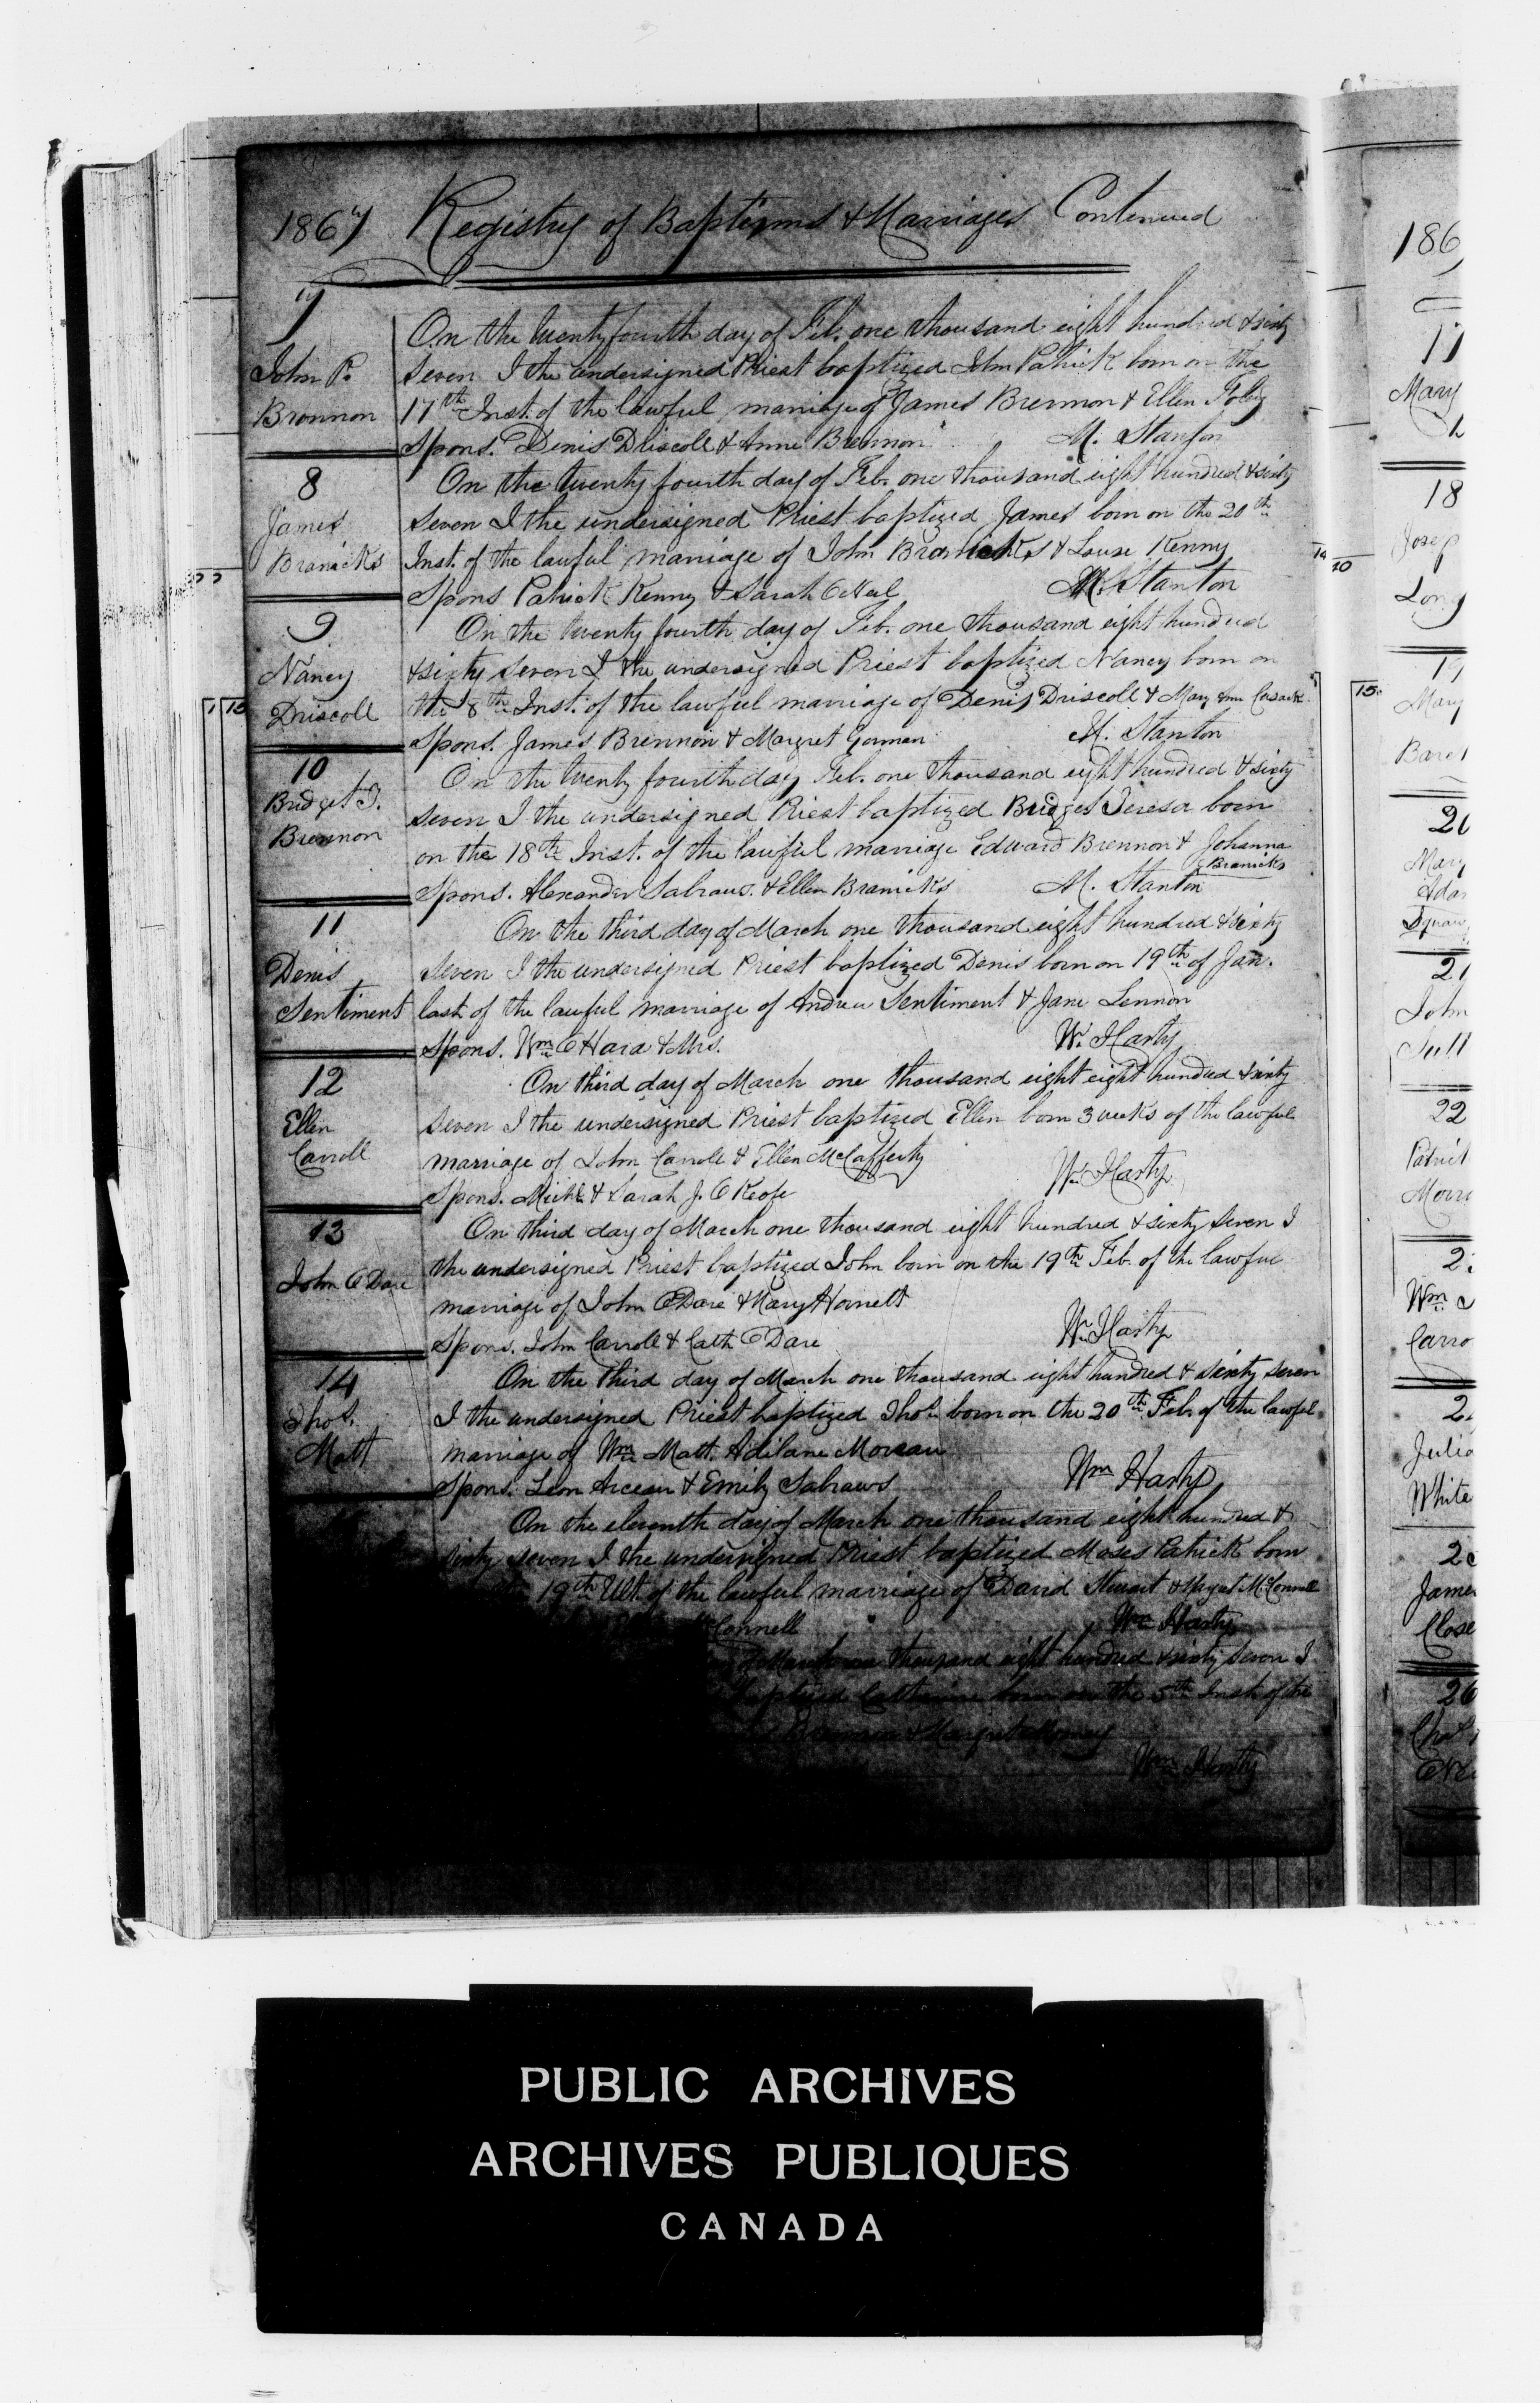 1867 Registry of Baptisms & Marriages Continued
7
John P.
Brennon
On the twenty fourth day of Feb. one thousand eight hundred & sixty
seven I the undersigned Priest baptized John Patrick born on the
17th Inst. of the lawful marriage of James Brennon & Ellen Foley
Spons. Denis Driscoll & Anne Brennon M. Stanton
8
James
Branicks
On the twenty fourth day of Feb. one thousand eight hundred & sixty
seven I the undersigned Priest baptized James born on the 20th
Inst. of the lawful marriage of John Branicks & Louse Kenny
Spons Patrick Kenny & Sarah ONeil M. Stanton
9
Nancy
Driscoll
On the twenty fourth day of Feb. one thousand eight hundred
& sixty seven I the undersigned Priest baptized Nancy born on
the 8th Inst. of the lawful marriage of Denis Driscoll & Mary Ann Cusack
Spons. James Brennon & Margret Gorman M. Stanton
10
Bridget T.
Brennon
On the twenty fourth day Feb. one thousand eight hundred & sixty
seven I the undersigned Priest baptized Bridget Teresa born
on the 18th Inst. of the lawful marriage Edward Brennon & Johanna
Branicks
Spons. Alexander Sabraws. & Ellen Branicks M. Stanton
11
Denis
Sentiment
On the third day of March one thousand eight hundred & sixty
seven I the undersigned Priest baptized Denis born on 19th of Jan.
last of the lawful marriage of Andrew Sentiment & Jane Lennon
Spons. Wm OHara & Mrs. Wm Harty
12
Ellen
Carroll
On third day of March one thousand eight eight hundred & sixty
seven I the undersigned Priest baptized Ellen born 3 weeks of the lawful
marriage of John Carroll & Ellen McCafferty
Spons. Michl & Sarah J. OKeefe Wm Harty
13
John ODare
On third day of March one thousand eight hundred & sixty seven I
the undersigned Priest baptized John born on the 19th Feb. of the lawful
marriage of John ODare & Mary Hornett
Spons. John Carroll & Cath ODare Wm Harty
14
Thos.
Matt
On the third day of March one thousand eight hundred & sixty seven
I the undersigned Priest baptized Thos. born on the 20th Feb. of the lawful
marriage of Wm Matt. Adilane Moreau
Spons. Leon Arceau & Emily Sabraws Wm Harty
On the eleventh day of March one thousand eight hundred &
sixty seven I the undersigned Priest baptized Moses Patrick born
19th Ult. of the lawful marriage of David Stewart & Margret McConnell
McConnell Wm Harty
of March one thousand eight hundred & sixty seven I
baptized Catherine born on the 5th Inst. of the
Brennon & Margret
Wm Harty
186
17
Mary
18
Josep
Long
19
Mary
20
Mary
Adan
21
John
Sull
22
Patrick
Wm
Carro
Julia
White
James
Close
26
PUBLIC ARCHIVES
ARCHIVES PUBLIQUES
CANADA